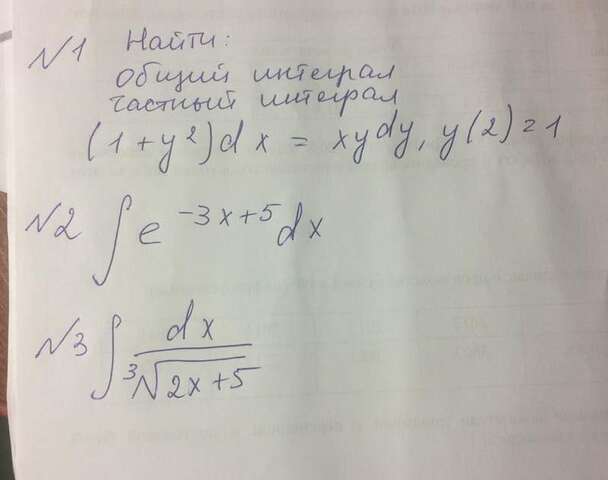 №1 Найти:
общий интеграл
частный интеграл
(1+y²)dx = xydy, y(2)=1
№2 ∫e^{-3x+5}dx
№3 ∫dx/∛(2x+5)